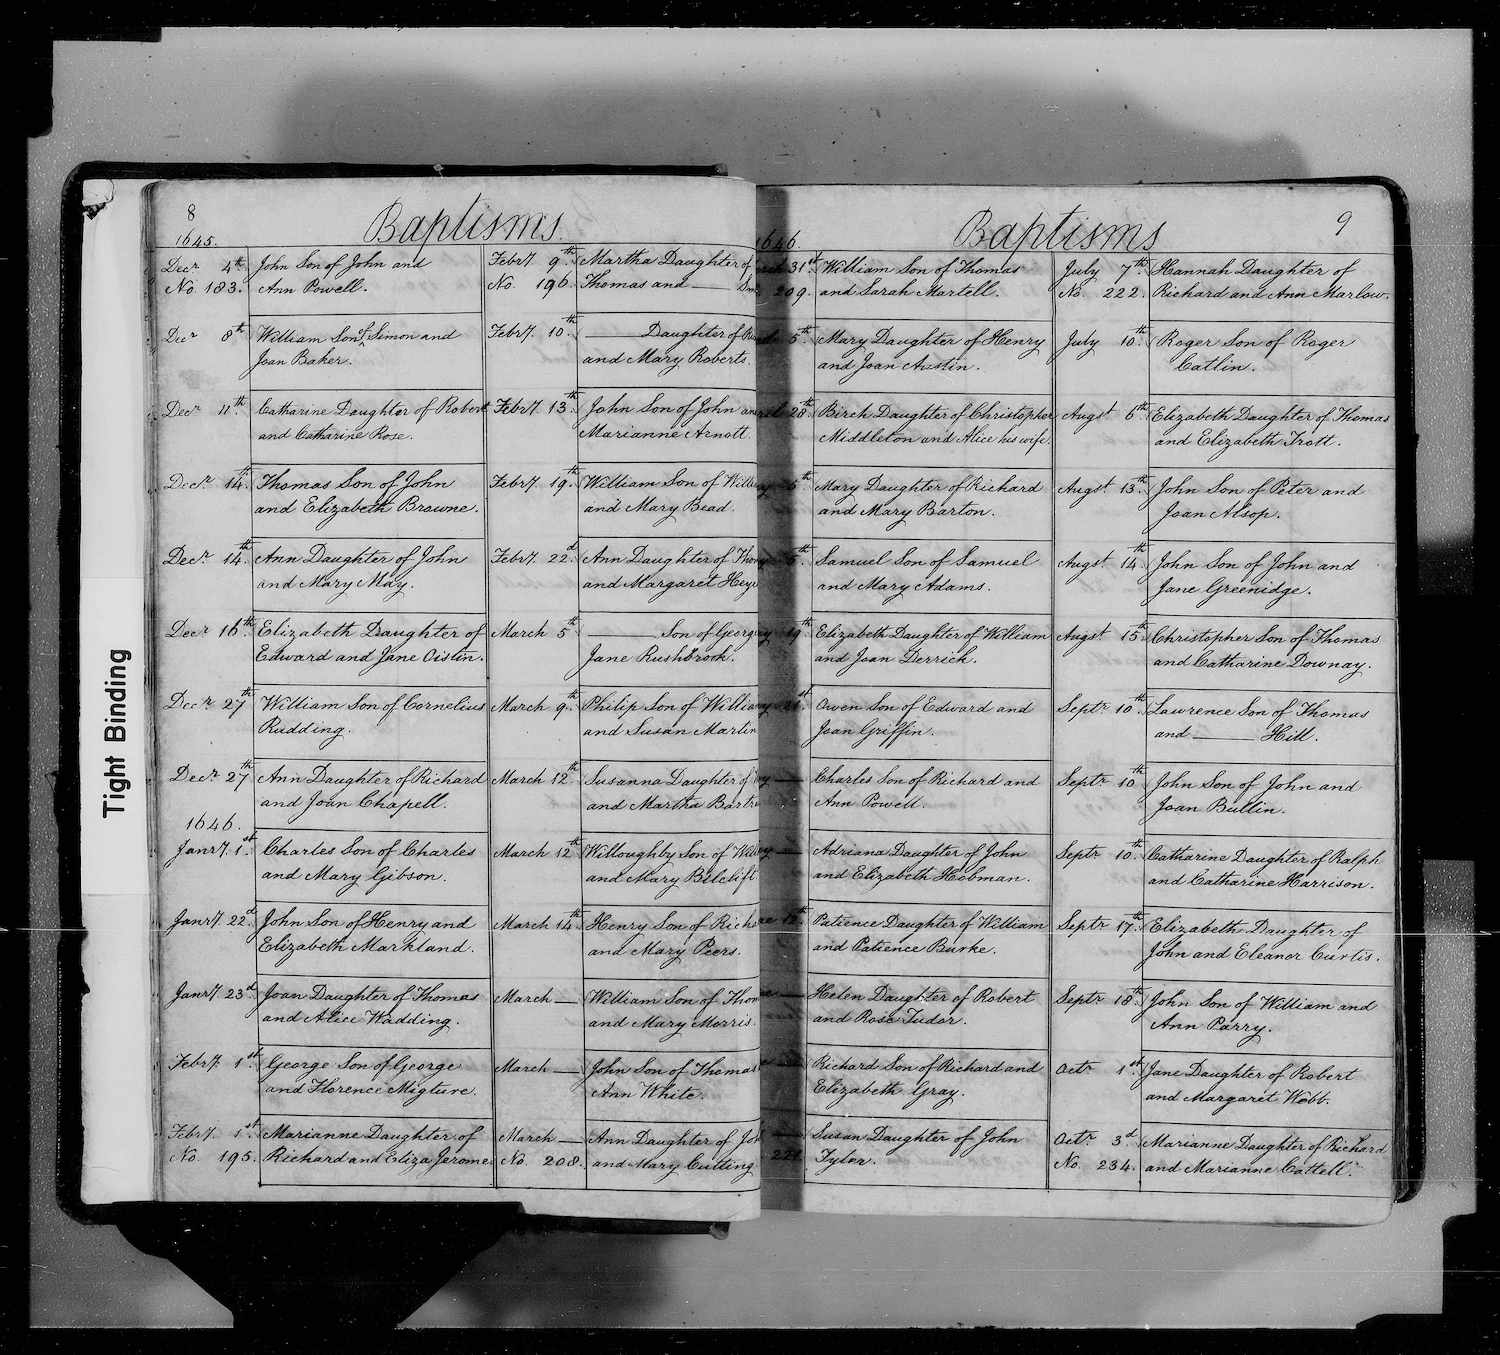 Tight Binding
8
Baptisms.
1645.
Decr 4th John Son of John and
No. 183. Ann Powell.
Decr 8th William Son of Simon and
Joan Baker.
Decr 11th Catharine Daughter of Robert
and Catharine Rose.
Decr 14th Thomas Son of John
and Elizabeth Browne.
Decr 14th Ann Daughter of John
and Mary May.
Decr 16th Elizabeth Daughter of
Edward and Jane Oistin.
Decr 27th William Son of Cornelius
Rudding.
Decr 27th Ann Daughter of Richard
and Joan Chapell.
1646.
Janry 1st Charles Son of Charles
and Mary Gibson.
Janry 22d John Son of Henry and
Elizabeth Markland.
Janry 23d Joan Daughter of Thomas
and Alice Wadding.
Febry 1st George Son of George
and Florence Migture.
Febry 1st Marianne Daughter of
No. 195. Richard and Eliza Jerome
Febry 9th Martha Daughter of
No. 196. Thomas and ——
Febry 10th —— Daughter of
and Mary Roberts.
Febry 13th John Son of John
Marianne Arnott.
Febry 19th William Son of
and Mary Bead.
Febry 22d Ann Daughter of
and Margaret
March 5th —— Son of
Jane Rushbrook.
March 9th Philip Son of
and Susan Martin
March 12th Susanna Daughter of
and Martha
March 12th Willoughby Son of
and Mary Belclift
March 14th Henry Son of
and Mary Peers.
March — William Son of
and Mary Morris.
March — John Son of Thomas
Ann White.
March — Ann Daughter of
No. 208. and Mary Cutting
9
Baptisms
1646.
31st William Son of Thomas
209. and Sarah Martell.
5th Mary Daughter of Henry
and Joan Austin.
28th Birch Daughter of Christopher
Middleton and Alice his wife.
5th Mary Daughter of Richard
and Mary Barton.
5th Samuel Son of Samuel
and Mary Adams.
19th Elizabeth Daughter of William
and Joan Derrick.
21st Owen Son of Edward and
Joan Griffin.
— Charles Son of Richard and
Ann Powell.
— Adriana Daughter of John
and Elizabeth Hobman.
12th Patience Daughter of William
and Patience Burke.
— Helen Daughter of Robert
and Rose Tudor.
Richard Son of Richard and
Elizabeth Gray.
— Susan Daughter of John
221. Tyler.
July 7th Hannah Daughter of
No. 222. Richard and Ann Marlow.
July 10th Roger Son of Roger
Catlin.
Augst 6th Elizabeth Daughter of Thomas
and Elizabeth Trott.
Augst 13th John Son of Peter and
Joan Alsop.
Augst 14th John Son of John and
Jane Greenidge.
Augst 15th Christopher Son of Thomas
and Catharine Downay.
Septr 10th Lawrence Son of Thomas
and —— Hill.
Septr 10th John Son of John and
Joan Bullin.
Septr 10th Catharine Daughter of Ralph
and Catharine Harrison.
Septr 17th Elizabeth Daughter of
John and Eleanor Curtis.
Septr 18th John Son of William and
Ann Parry.
Octr 1st Jane Daughter of Robert
and Margaret Webb.
Octr 3d Marianne Daughter of Richard
No. 234. and Marianne Cattell.